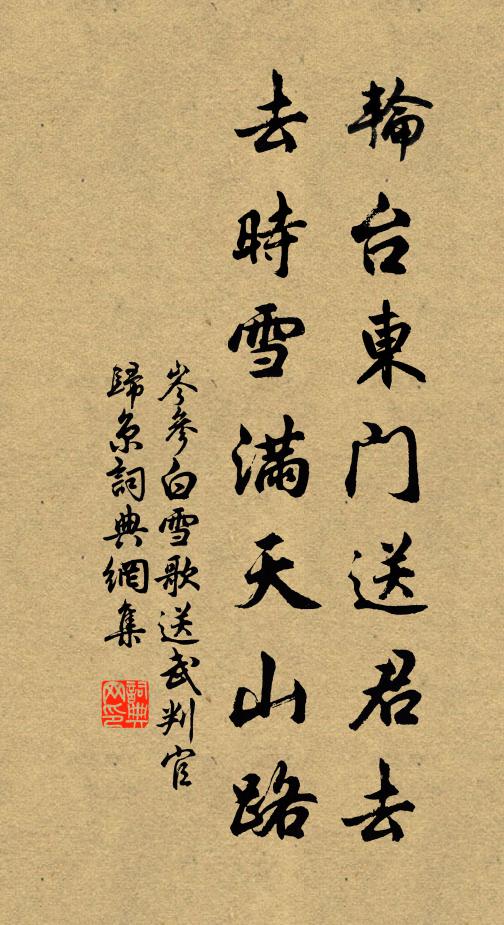 輪台東門送君去
去時雪滿天山路
岑參白雪歌送武判官
歸京詞典網集
詞典
网印